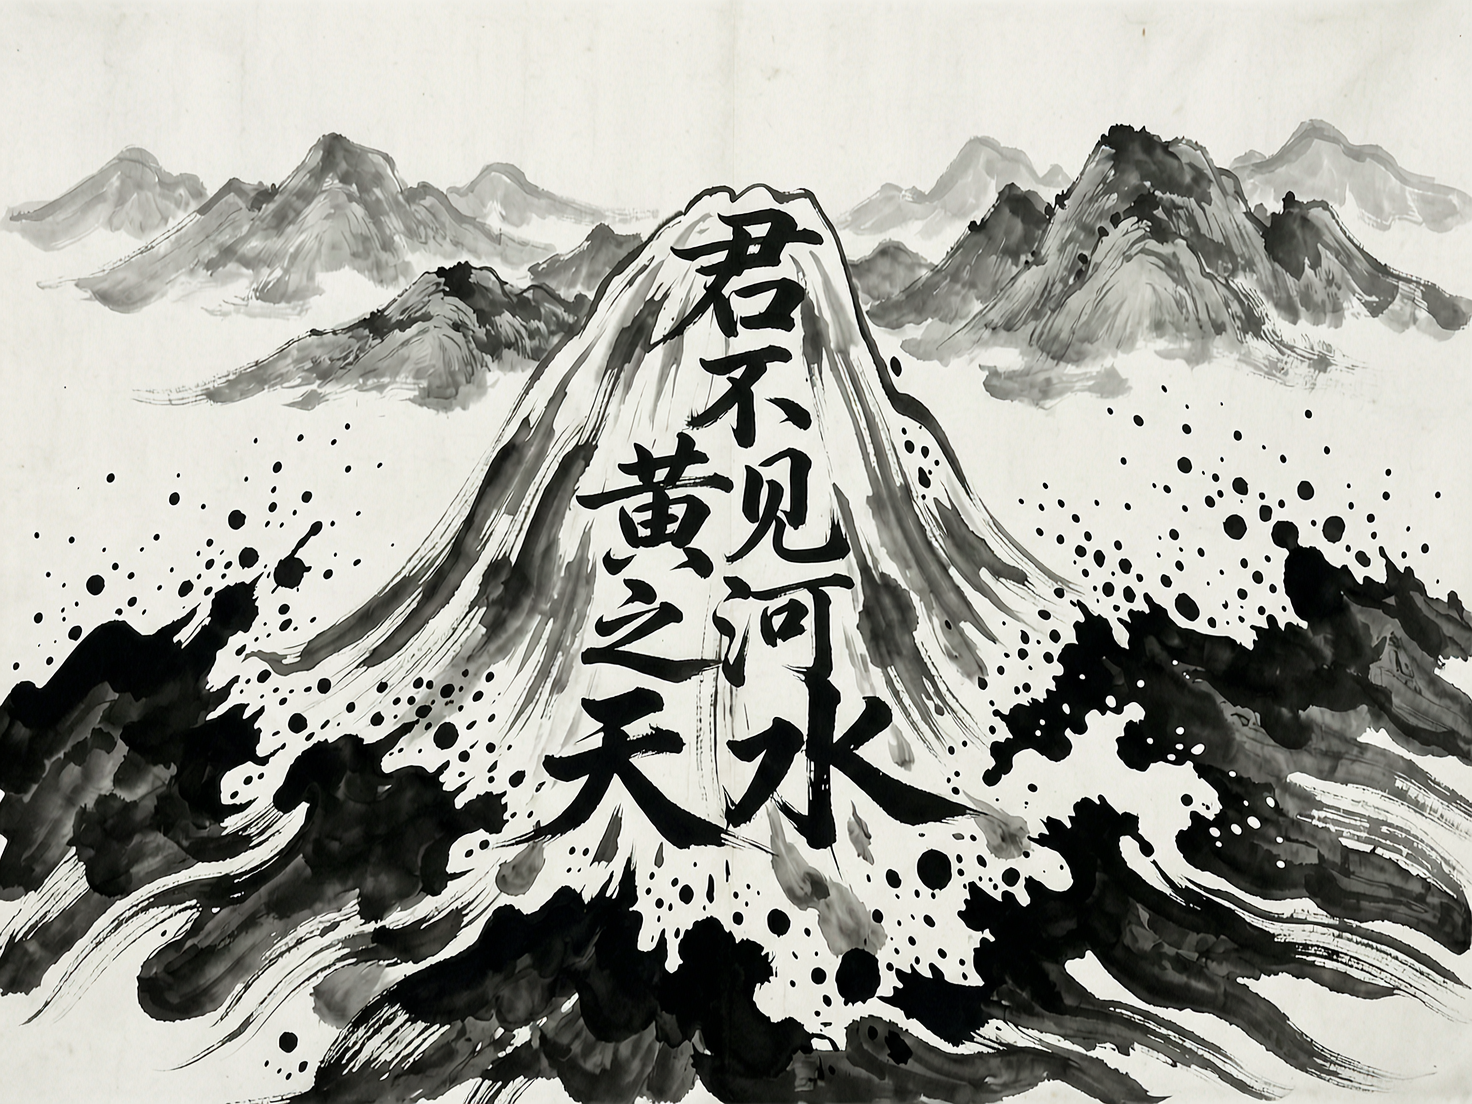 君
不
见黄
河之
水天